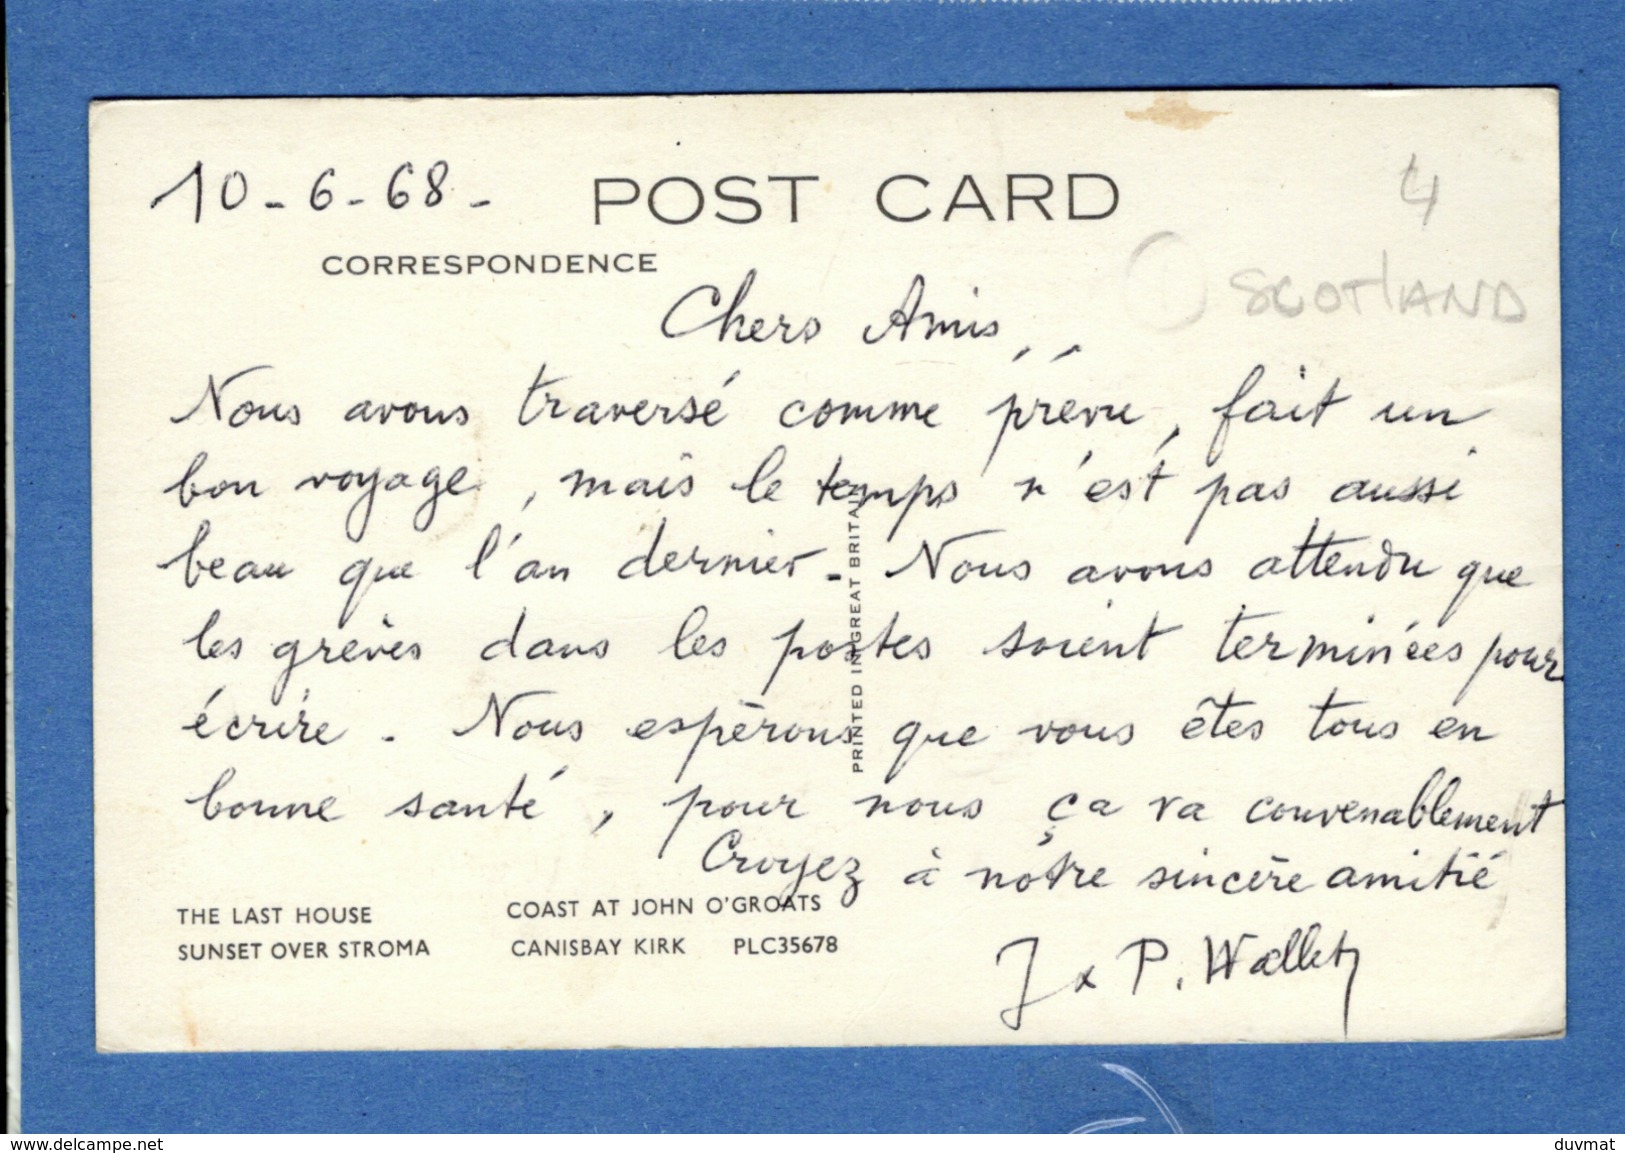 10-6-68-
POST CARD
4
CORRESPONDENCE
SCOTLAND
Chers Amis,
Nous avons traversé comme prévu, fait un
bon voyage, mais le temps n'est pas aussi
beau que l'an dernier. Nous avons attendu que
les grèves dans les postes soient terminées pour
écrire. Nous espérons que vous êtes tous en
bonne santé, pour nous ça va convenablement
Croyez à nôtre sincère amitié
J x P. Wallet
PRINTED IN GREAT BRITAIN
THE LAST HOUSE COAST AT JOHN O'GROATS
SUNSET OVER STROMA CANISBAY KIRK PLC35678
www.delcampe.net
duvmat